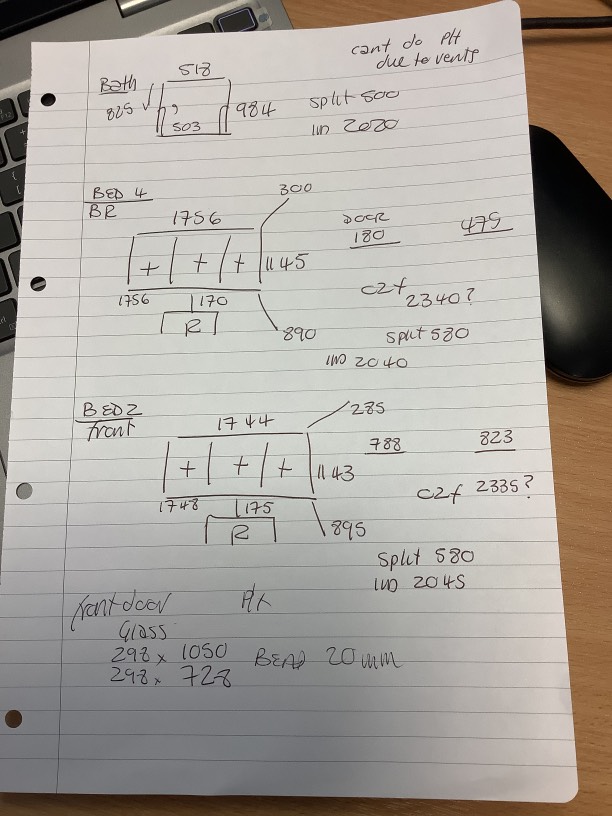 cant do PH
due to vents
Bath
518
825
984
503
split 500
IID 2020
BED 4
BR
300
1756
DOOR
180
475
1145
c2f
2340?
1756
170
R
890
split 580
IID 2040
BED 2
front
285
1744
788
823
1143
c2f 2335?
1748
175
R
895
split 580
IID 2045
front door
Glass
298 x 1050
BEAD 20mm
298 x 728